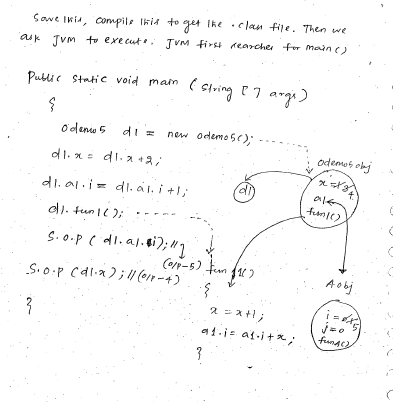 Save this, compile this to get the .class file. Then we
ask JVM to execute. JVM first searches for main()
Public static void main (String [] args)
{
Odemo5 d1 = new odemo5();
d1.x = d1.x+2;
d1.a1.i = d1.a1.i+1;
d1.fun1();
S.O.P (d1.a1.i);//
(O/P-5)
S.O.P (d1.x); // (O/P-4)
}
fun1()
{
x = x+1;
a1.i = a1.i+x;
}
d1
Odemo5 obj
a1
fun1()
A obj
j=0